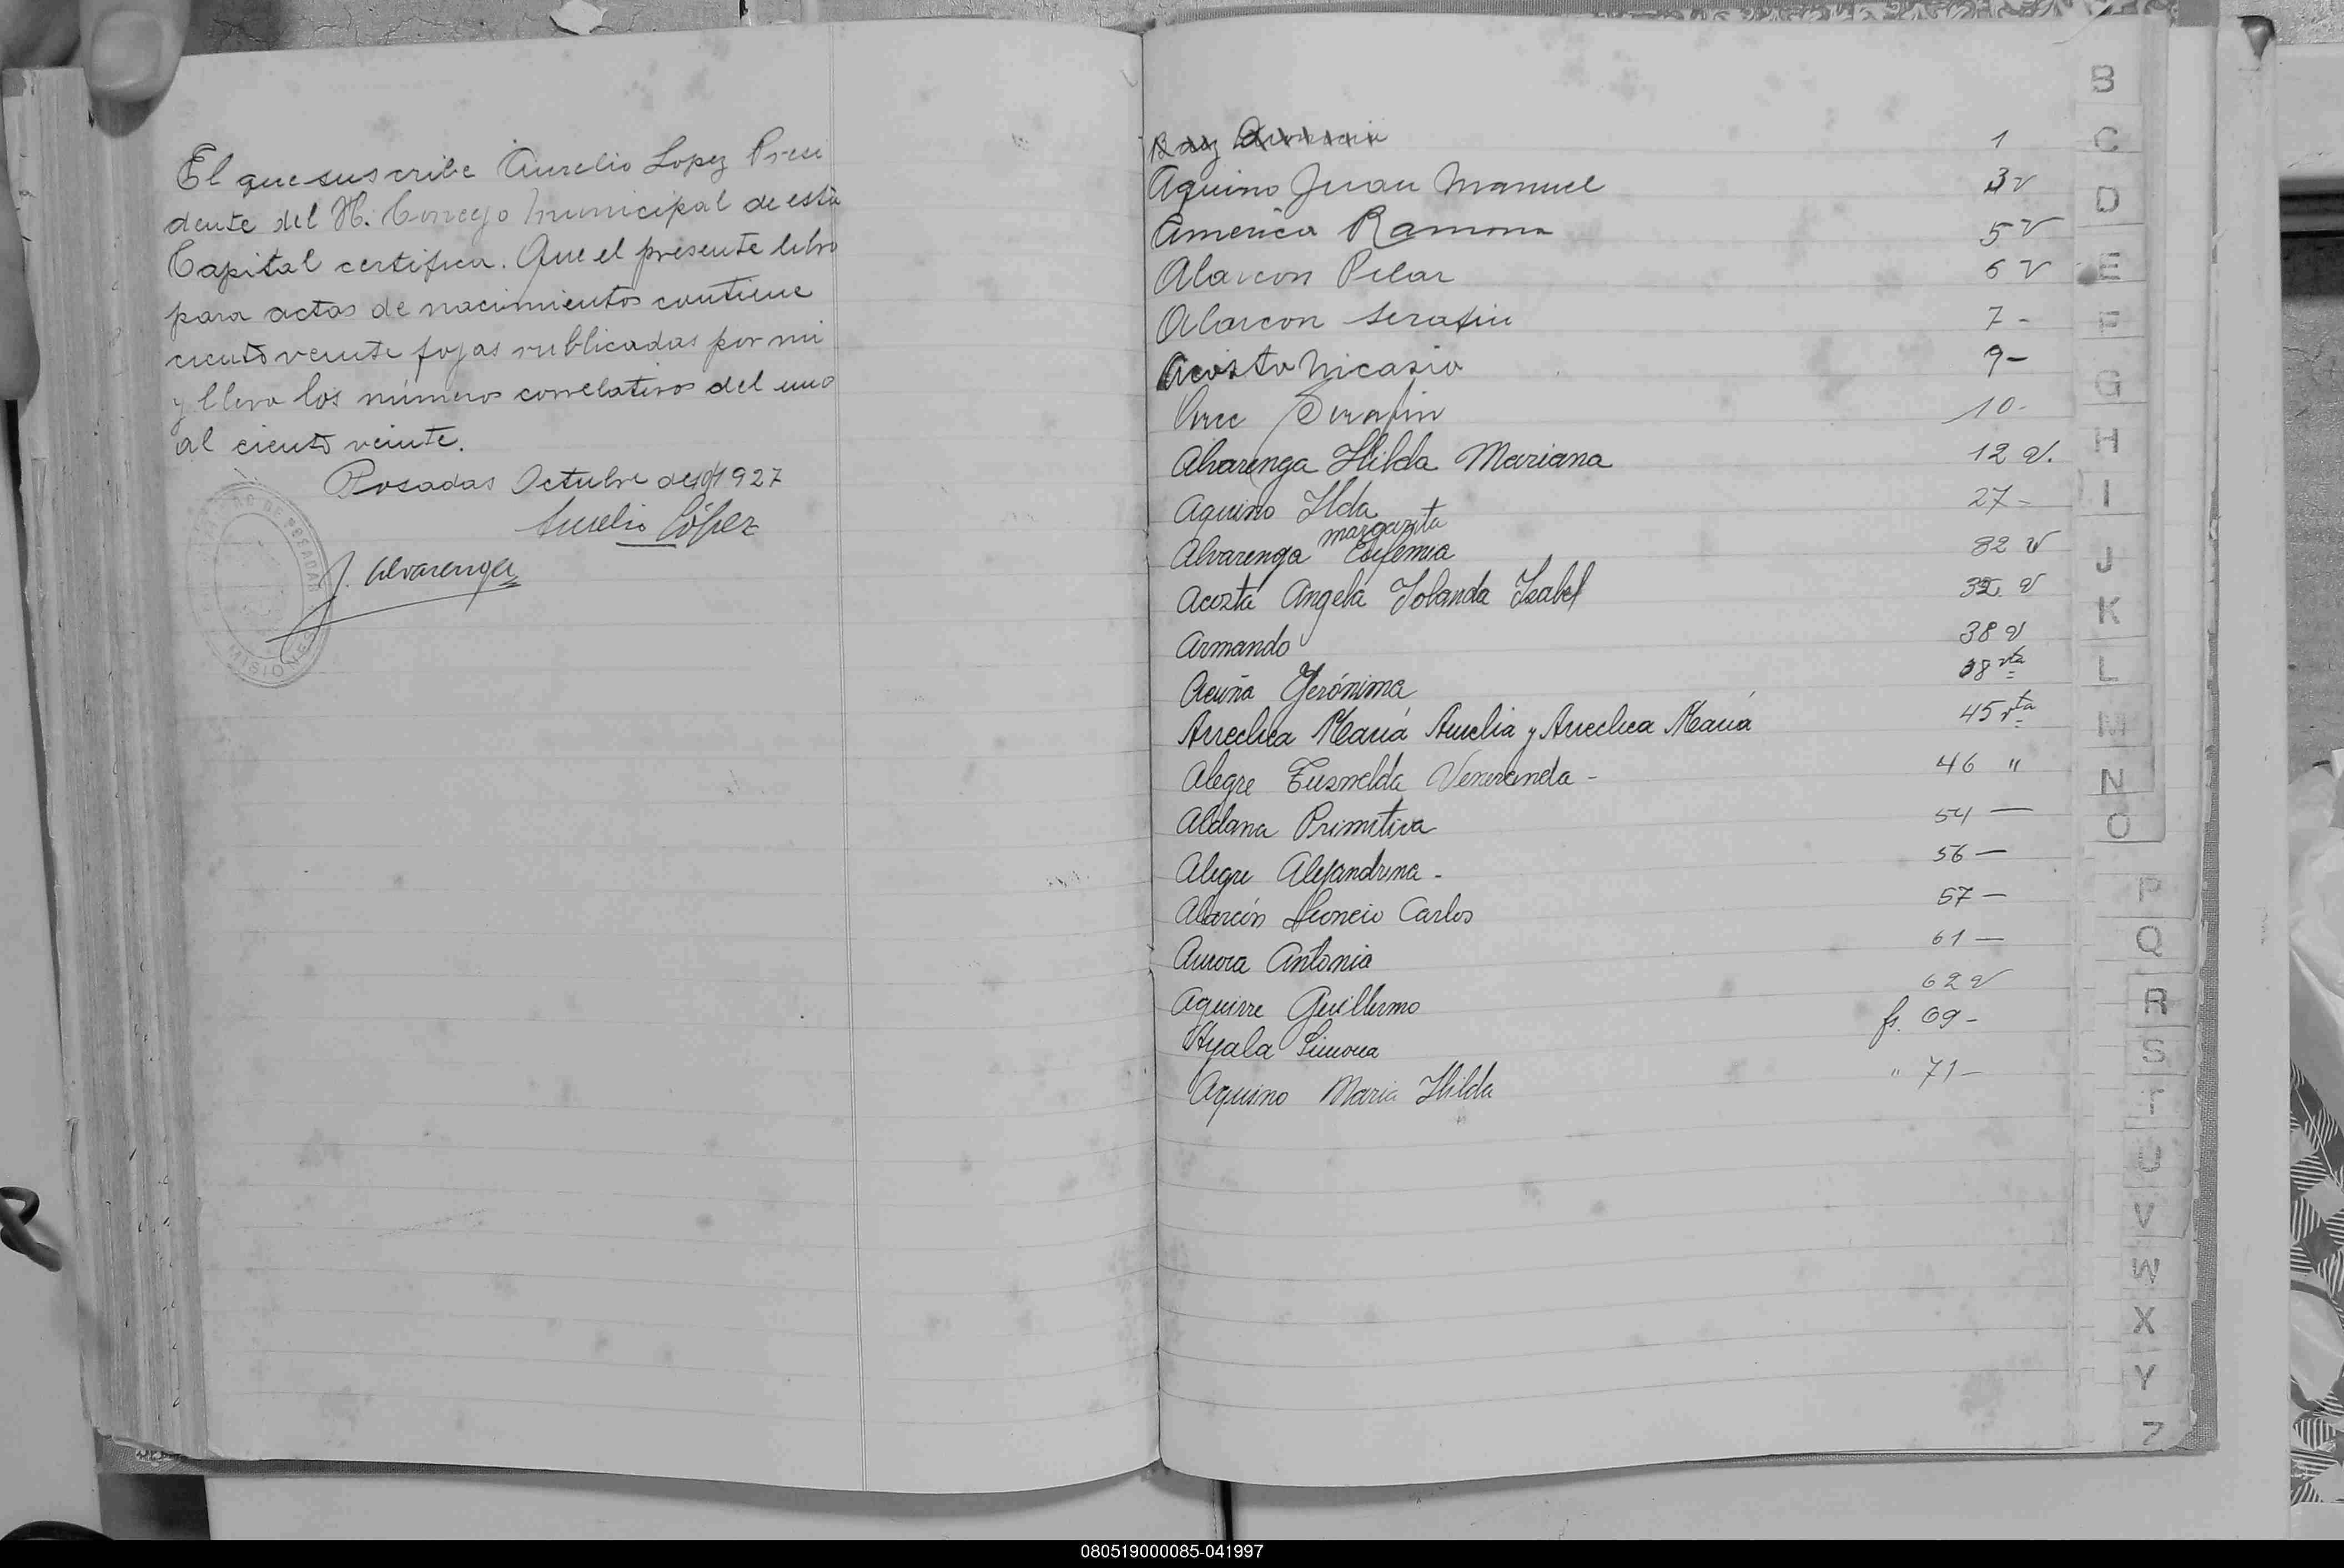 El que suscribe Aurelio Lopez Presi
dente del H. Concejo Municipal de esta
Capital certifica. Que el presente libro
para actas de nacimientos contiene
ciento veinte fojas rublicadas por mi
y lleva los números correlativos del uno
al ciento veinte.
Posadas Octubre de 1927
Aurelio López
J. Alvarenga
MISIONES
1
Aquino Juan Manuel 3v
America Ramona 5v
Alarcon Pilar 6v
Alarcon Serafin 7-
Acosta Nicasio 9-
Arce Serafin 10-
Alvarenga Hilda Mariana 12 v.
Aquino Ilda 27-
margarita
Alvarenga Eufemia 32 v
Acosta Angela Yolanda Isabel v
Armando 38 v
Acuña Gerónima 38 vta
Arrechea María Aurelia y Arrechea María 45 vta
Alegre Tusnelda Veneranda - 46 "
Aldana Primitiva 54 —
Alegre Alejandrina - 56 —
Alarcón Leoncio Carlos 57 —
Aurora Antonia 61 —
Aguirre Guillermo 62 v
Ayala Simona fs. 69-
Aquino Maria Hilda " 71-
B
C
D
E
F
G
H
I
J
K
L
M
N
O
P
Q
R
S
T
U
V
W
X
Y
Z
080519000085-041997